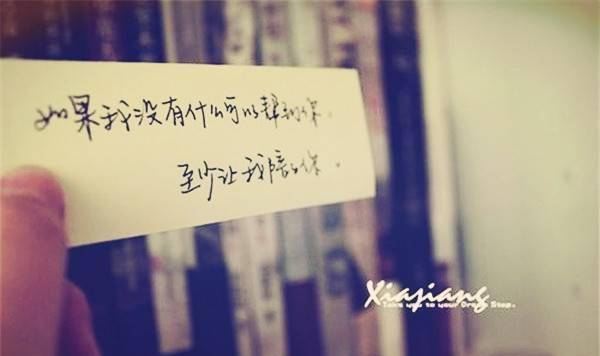 如果我没有什么可以帮到你,
至少让我陪着你。
Xiajiang
Take you to your Dream Step.